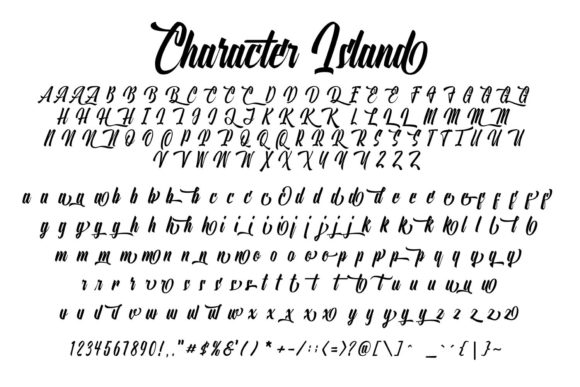 Character Island
A A A A B B B B C C C C D D D D E E E F F F G G G G
H H H H I I I I J J J K K K K L L L L M M M M
N N N N O O O P P P P Q Q Q R R R R S S S T T T U U U
V V W W X X X Y Y Y Z Z Z
a a a a b b b b b c c c c d d d d d e e e e e f f f f f
g g g g g h h h h i i i i i j j j j j k k k k l l l l l
m m m m m n n n n n o o o o o p p p p p q q q q q
r r r r r s s s s s t t t t t t u u u u u
v v v v w w w w w x x x x x y y y y y z z z z z
1234567890!,."#$%&'()*+-/:;<=>?@[\]^_`´{|}~